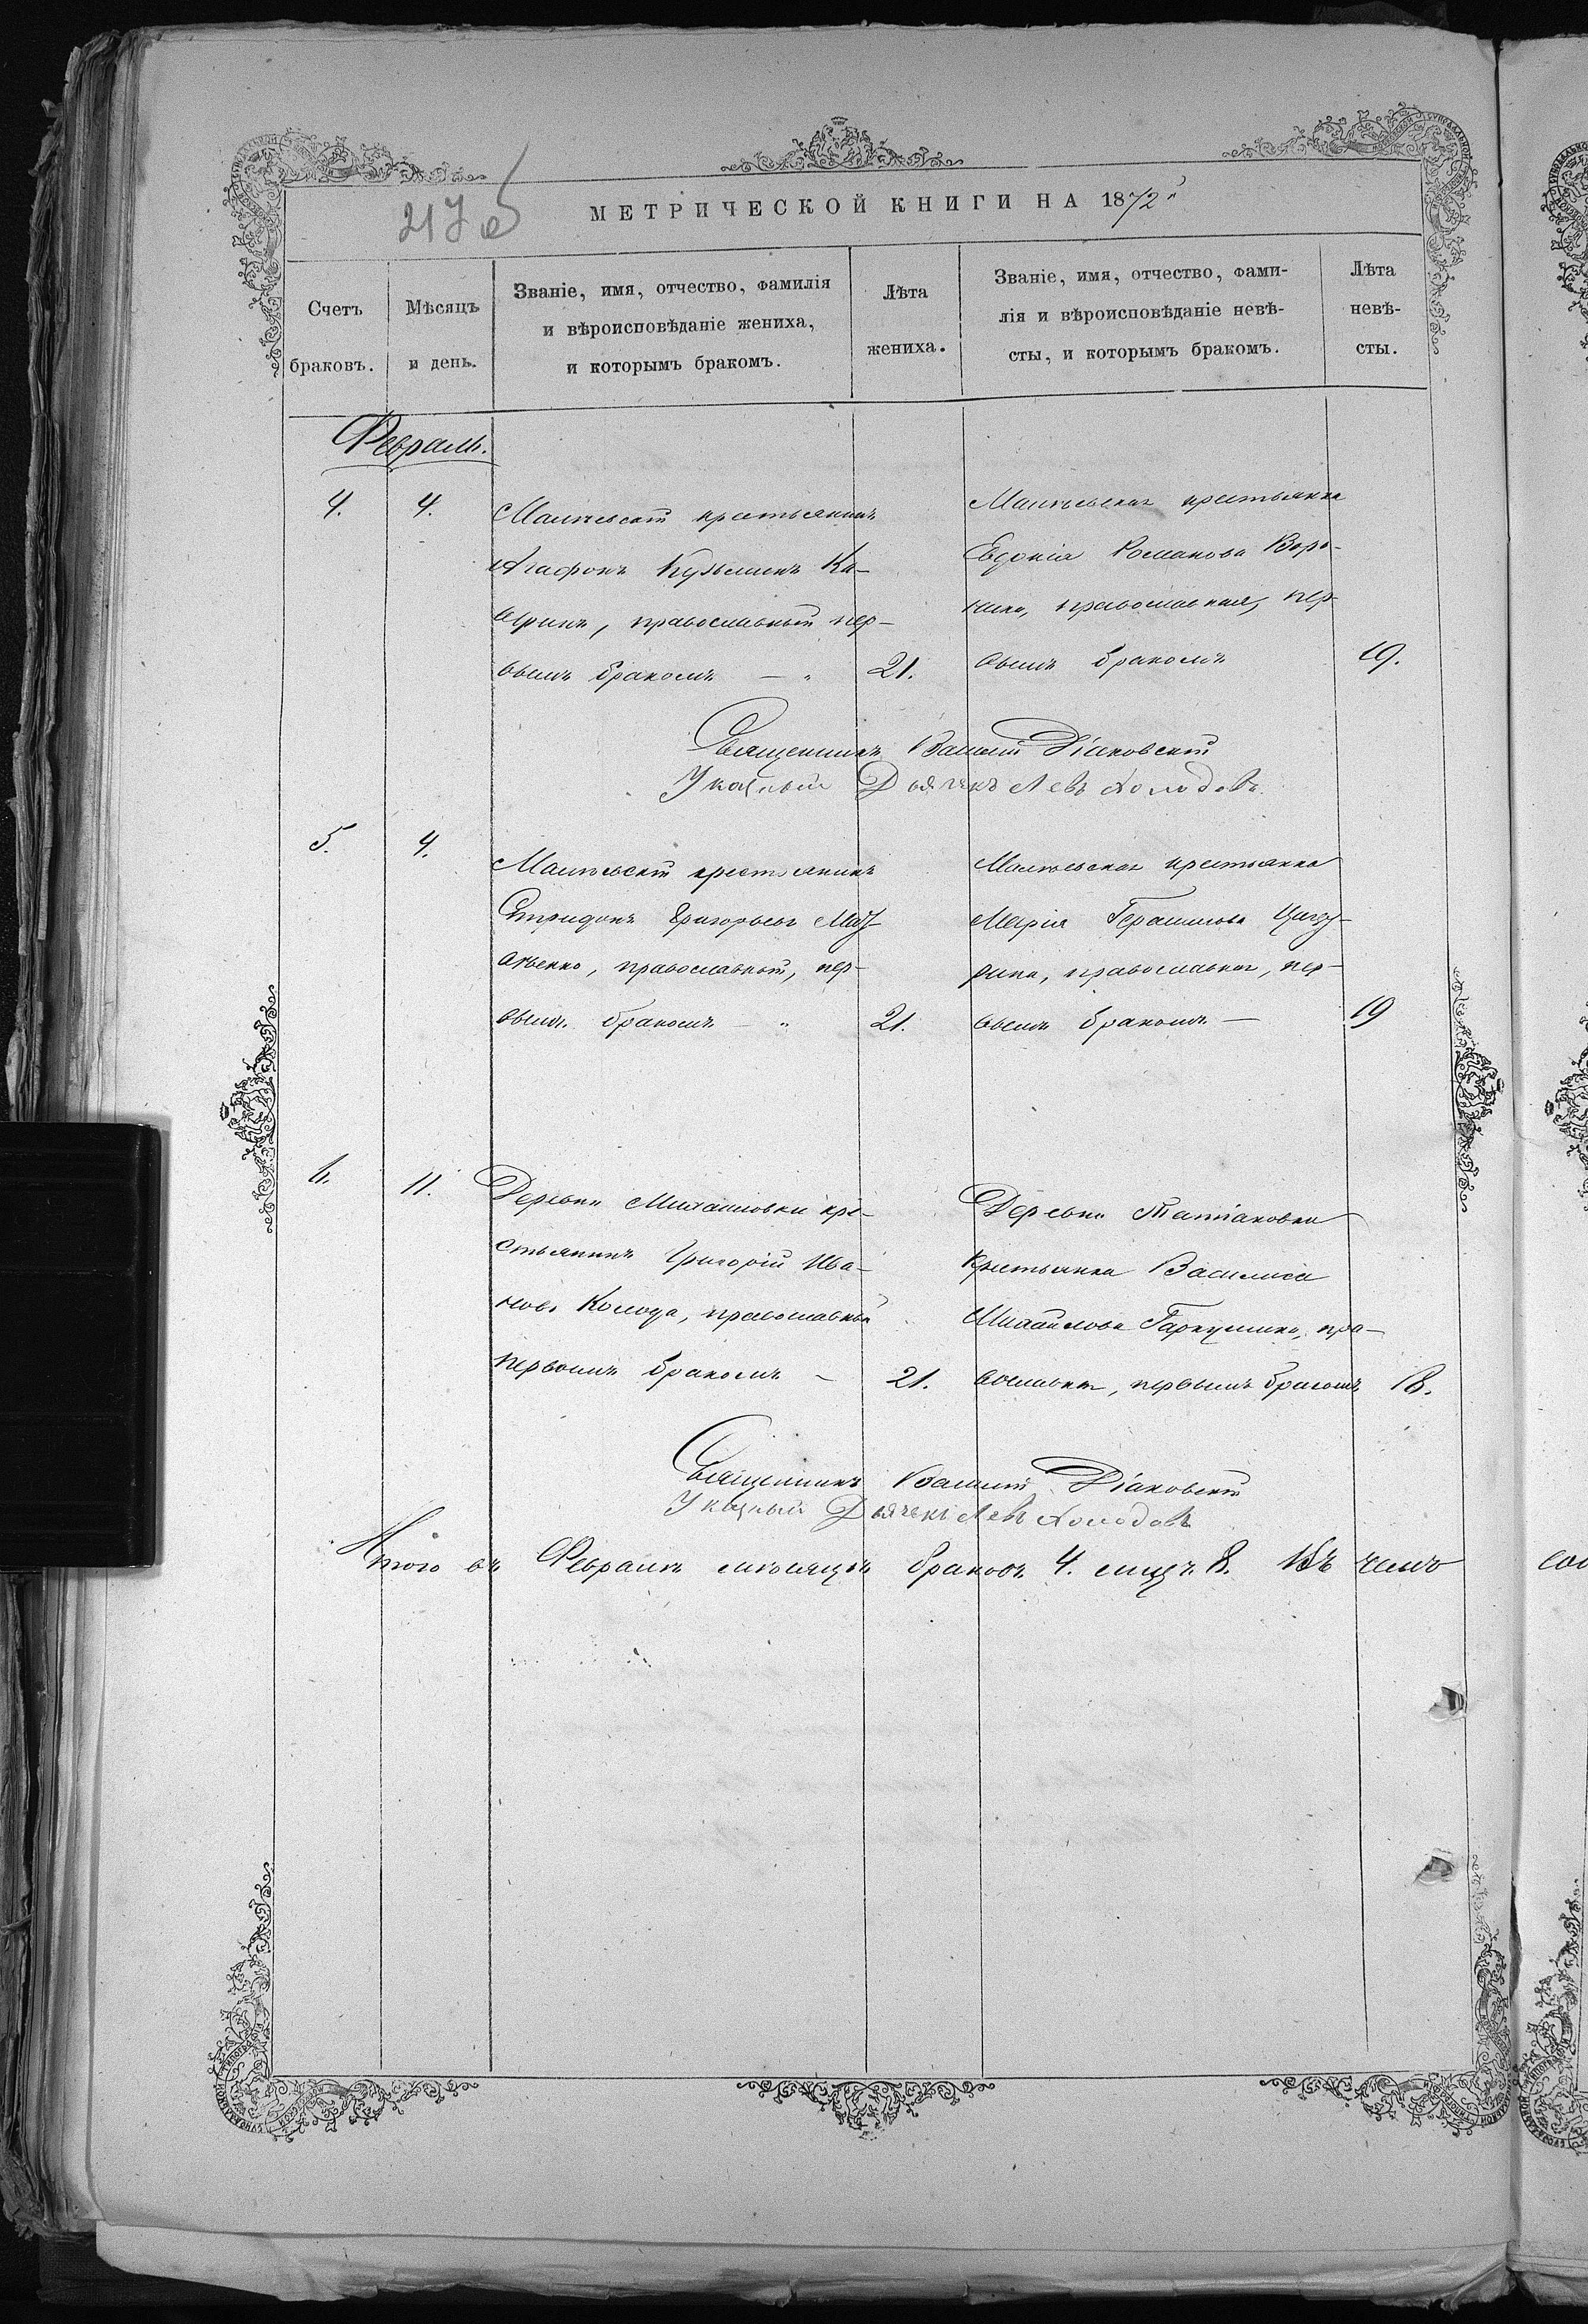 217об
МЕТРИЧЕСКОЙ КНИГИ НА 1872й
Счетъ браковъ.
Мѣсяцъ и день.
Званіе, имя, отчество, фамилія
и вѣроисповѣданіе жениха,
и которымъ бракомъ.
Лѣта жениха.
Званіе, имя, отчество, фами-
лія и вѣроисповѣданіе невѣ-
сты, и которымъ бракомъ.
Лѣта невѣ-
сты.
Февраль.
4. 4.
крестьянинъ
Агафонъ Кузьминъ Ка-
православный пер-
вымъ бракомъ — " 21.
крестьянка
Евдокія Романова Воро-
нина, православная, пер-
вымъ бракомъ 19.
Священникъ Василій Діаковскій
Указный Дьячекъ Левъ Холодовъ
5. 4.
крестьянинъ
Спиридонъ Григорьевъ
православный, пер-
вымъ бракомъ — " 21.
крестьянка
Марія Герасимова
православная, пер-
вымъ бракомъ — 19
6. 11.
Деревни Михайловки кре-
стьянинъ Григорій Ива-
новъ Колода, православный
первымъ бракомъ — 21.
Деревни Татіановки
крестьянка Василиса
Михайлова Гаркушина, пра-
вославная, первымъ бракомъ 18.
Священникъ Василій Діаковскій
Указный Дьячекъ Левъ Холодовъ
Итого въ Февралѣ мѣсяцѣ браковъ 4. лицъ 8. Въ чемъ